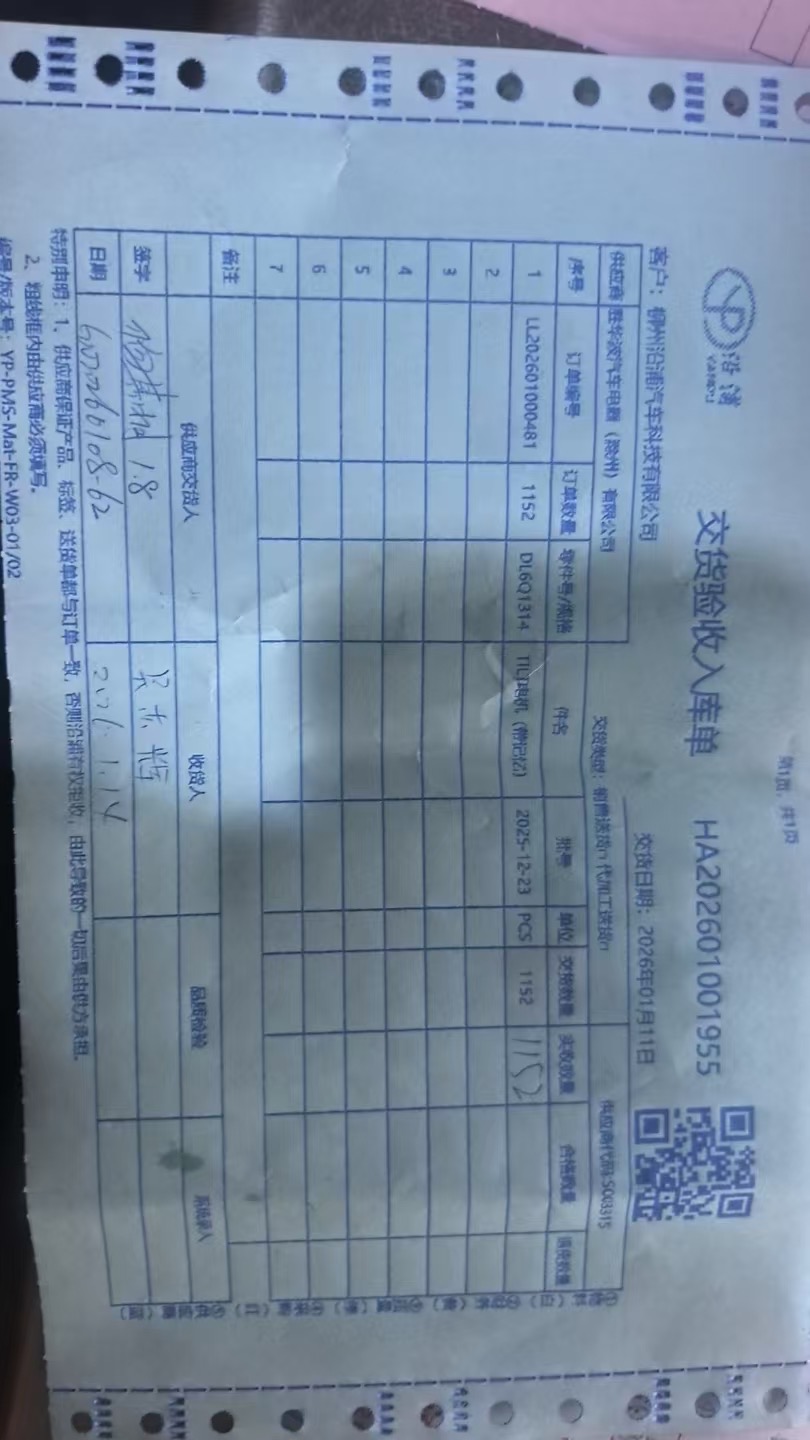 第1页，共1页
沿浦
YANPU
交货验收入库单 HA202601001955
客户：柳州沿浦汽车科技有限公司 交货日期：2026年01月11日
供应商 胜华波汽车电器（滁州）有限公司 交货类型：销售送货 代加工送货 供应商代码 S003315
序号 订单编号 订单数量 零件号/规格 件名 批号 单位 交货数量 实收数量 合格数量 退货数量
1 LL202601000481 1152 DL6Q1314 TILT电机（带记忆） 2025-12-23 PCS 1152 1152
2
3
4
5
6
7
备注
供应商交货人 收货人 品质检验 系统录入
签字 1.8
日期 2026.1.14
特别申明：1、供应商保证产品、标签、送货单都与订单一致，否则沿浦有权拒收，由此导致的一切后果由供方承担。
2、粗线框内由供应商必须填写。
编号/版本号：YP-PMS-Mat-FR-W03-01/02